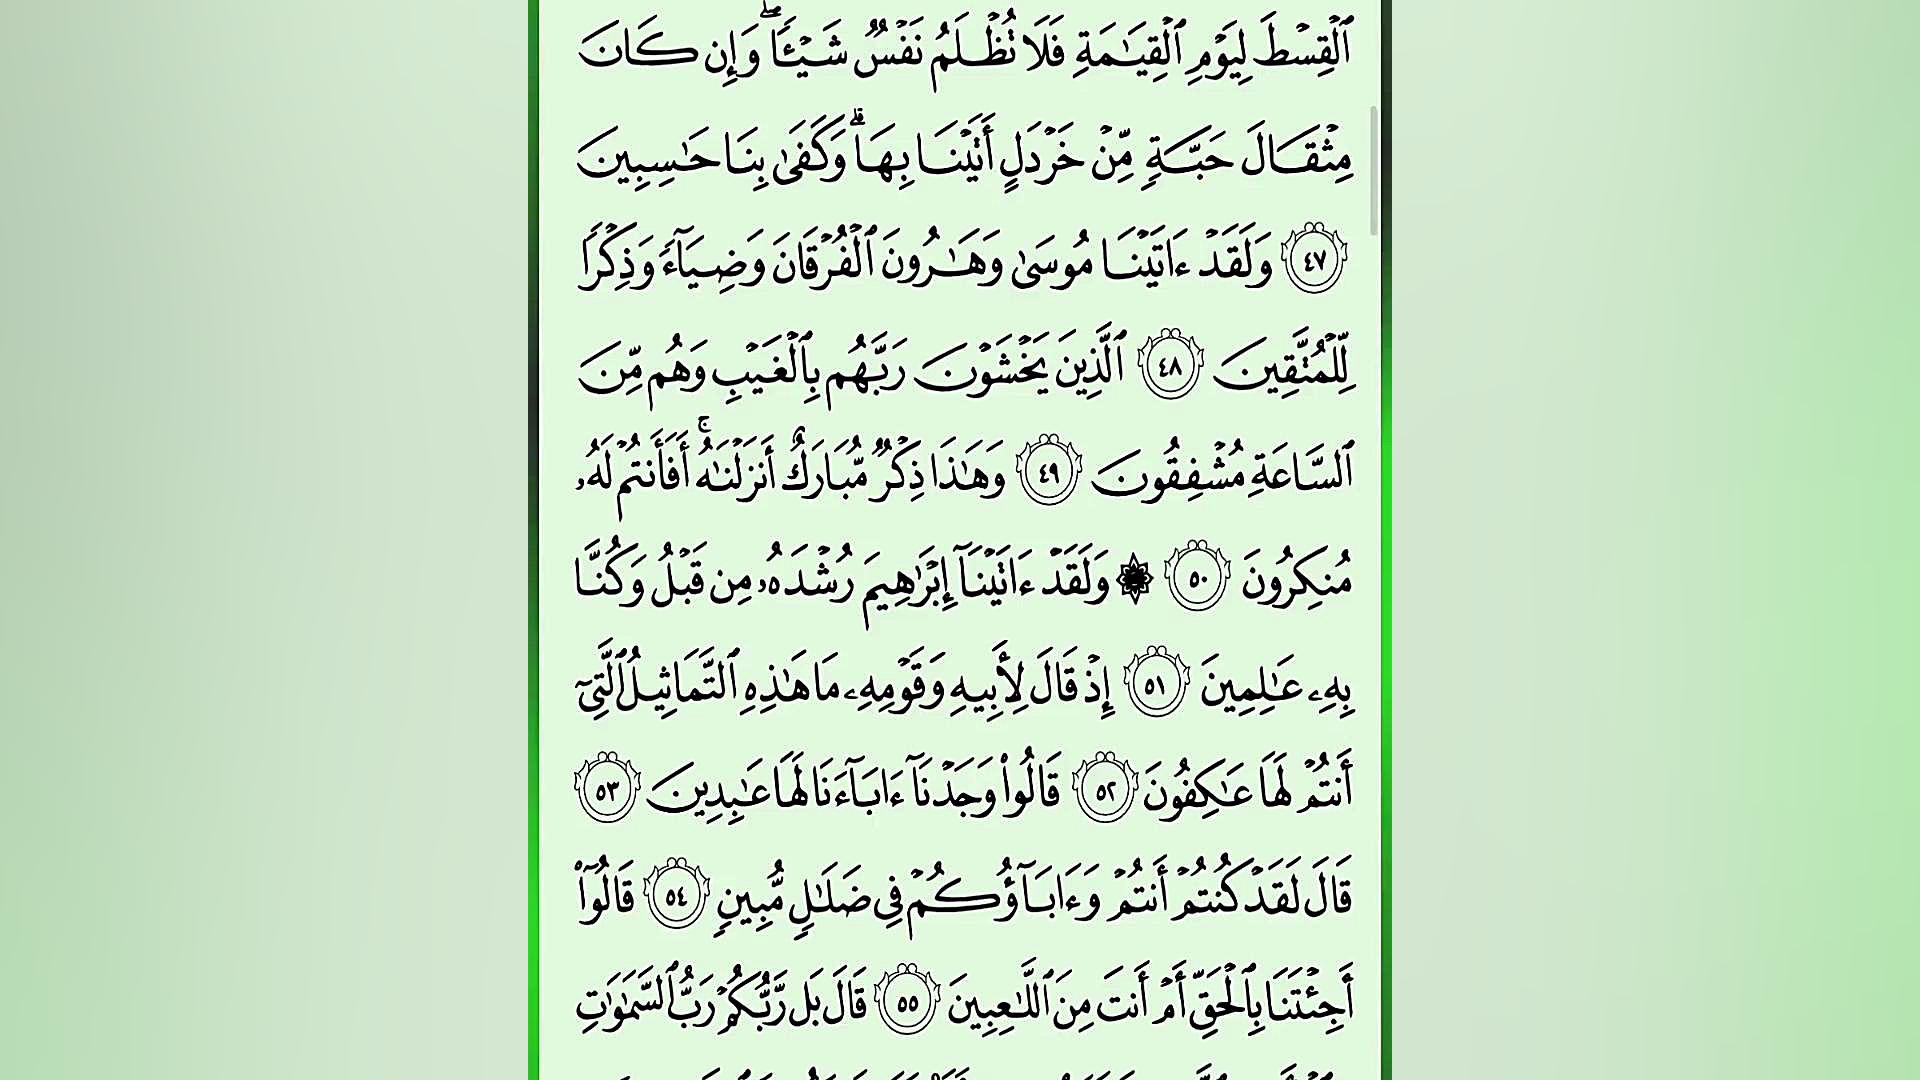 ٱلۡقِسۡطَ لِيَوۡمِ ٱلۡقِيَٰمَةِ فَلَا تُظۡلَمُ نَفۡسٞ شَيۡـٔٗاۖ وَإِن كَانَ
مِثۡقَالَ حَبَّةٖ مِّنۡ خَرۡدَلٍ أَتَيۡنَا بِهَاۗ وَكَفَىٰ بِنَا حَٰسِبِينَ
٤٧ وَلَقَدۡ ءَاتَيۡنَا مُوسَىٰ وَهَٰرُونَ ٱلۡفُرۡقَانَ وَضِيَآءٗ وَذِكۡرٗا
لِّلۡمُتَّقِينَ ٤٨ ٱلَّذِينَ يَخۡشَوۡنَ رَبَّهُم بِٱلۡغَيۡبِ وَهُم مِّنَ
ٱلسَّاعَةِ مُشۡفِقُونَ ٤٩ وَهَٰذَا ذِكۡرٞ مُّبَارَكٌ أَنزَلۡنَٰهُۚ أَفَأَنتُمۡ لَهُۥ
مُنكِرُونَ ٥٠ ۞ وَلَقَدۡ ءَاتَيۡنَآ إِبۡرَٰهِيمَ رُشۡدَهُۥ مِن قَبۡلُ وَكُنَّا
بِهِۦ عَٰلِمِينَ ٥١ إِذۡ قَالَ لِأَبِيهِ وَقَوۡمِهِۦ مَا هَٰذِهِ ٱلتَّمَاثِيلُ ٱلَّتِيٓ
أَنتُمۡ لَهَا عَٰكِفُونَ ٥٢ قَالُواْ وَجَدۡنَآ ءَابَآءَنَا لَهَا عَٰبِدِينَ ٥٣
قَالَ لَقَدۡ كُنتُمۡ أَنتُمۡ وَءَابَآؤُكُمۡ فِي ضَلَٰلٖ مُّبِينٖ ٥٤ قَالُوٓاْ
أَجِئۡتَنَا بِٱلۡحَقِّ أَمۡ أَنتَ مِنَ ٱللَّٰعِبِينَ ٥٥ قَالَ بَل رَّبُّكُمۡ رَبُّ ٱلسَّمَٰوَٰتِ